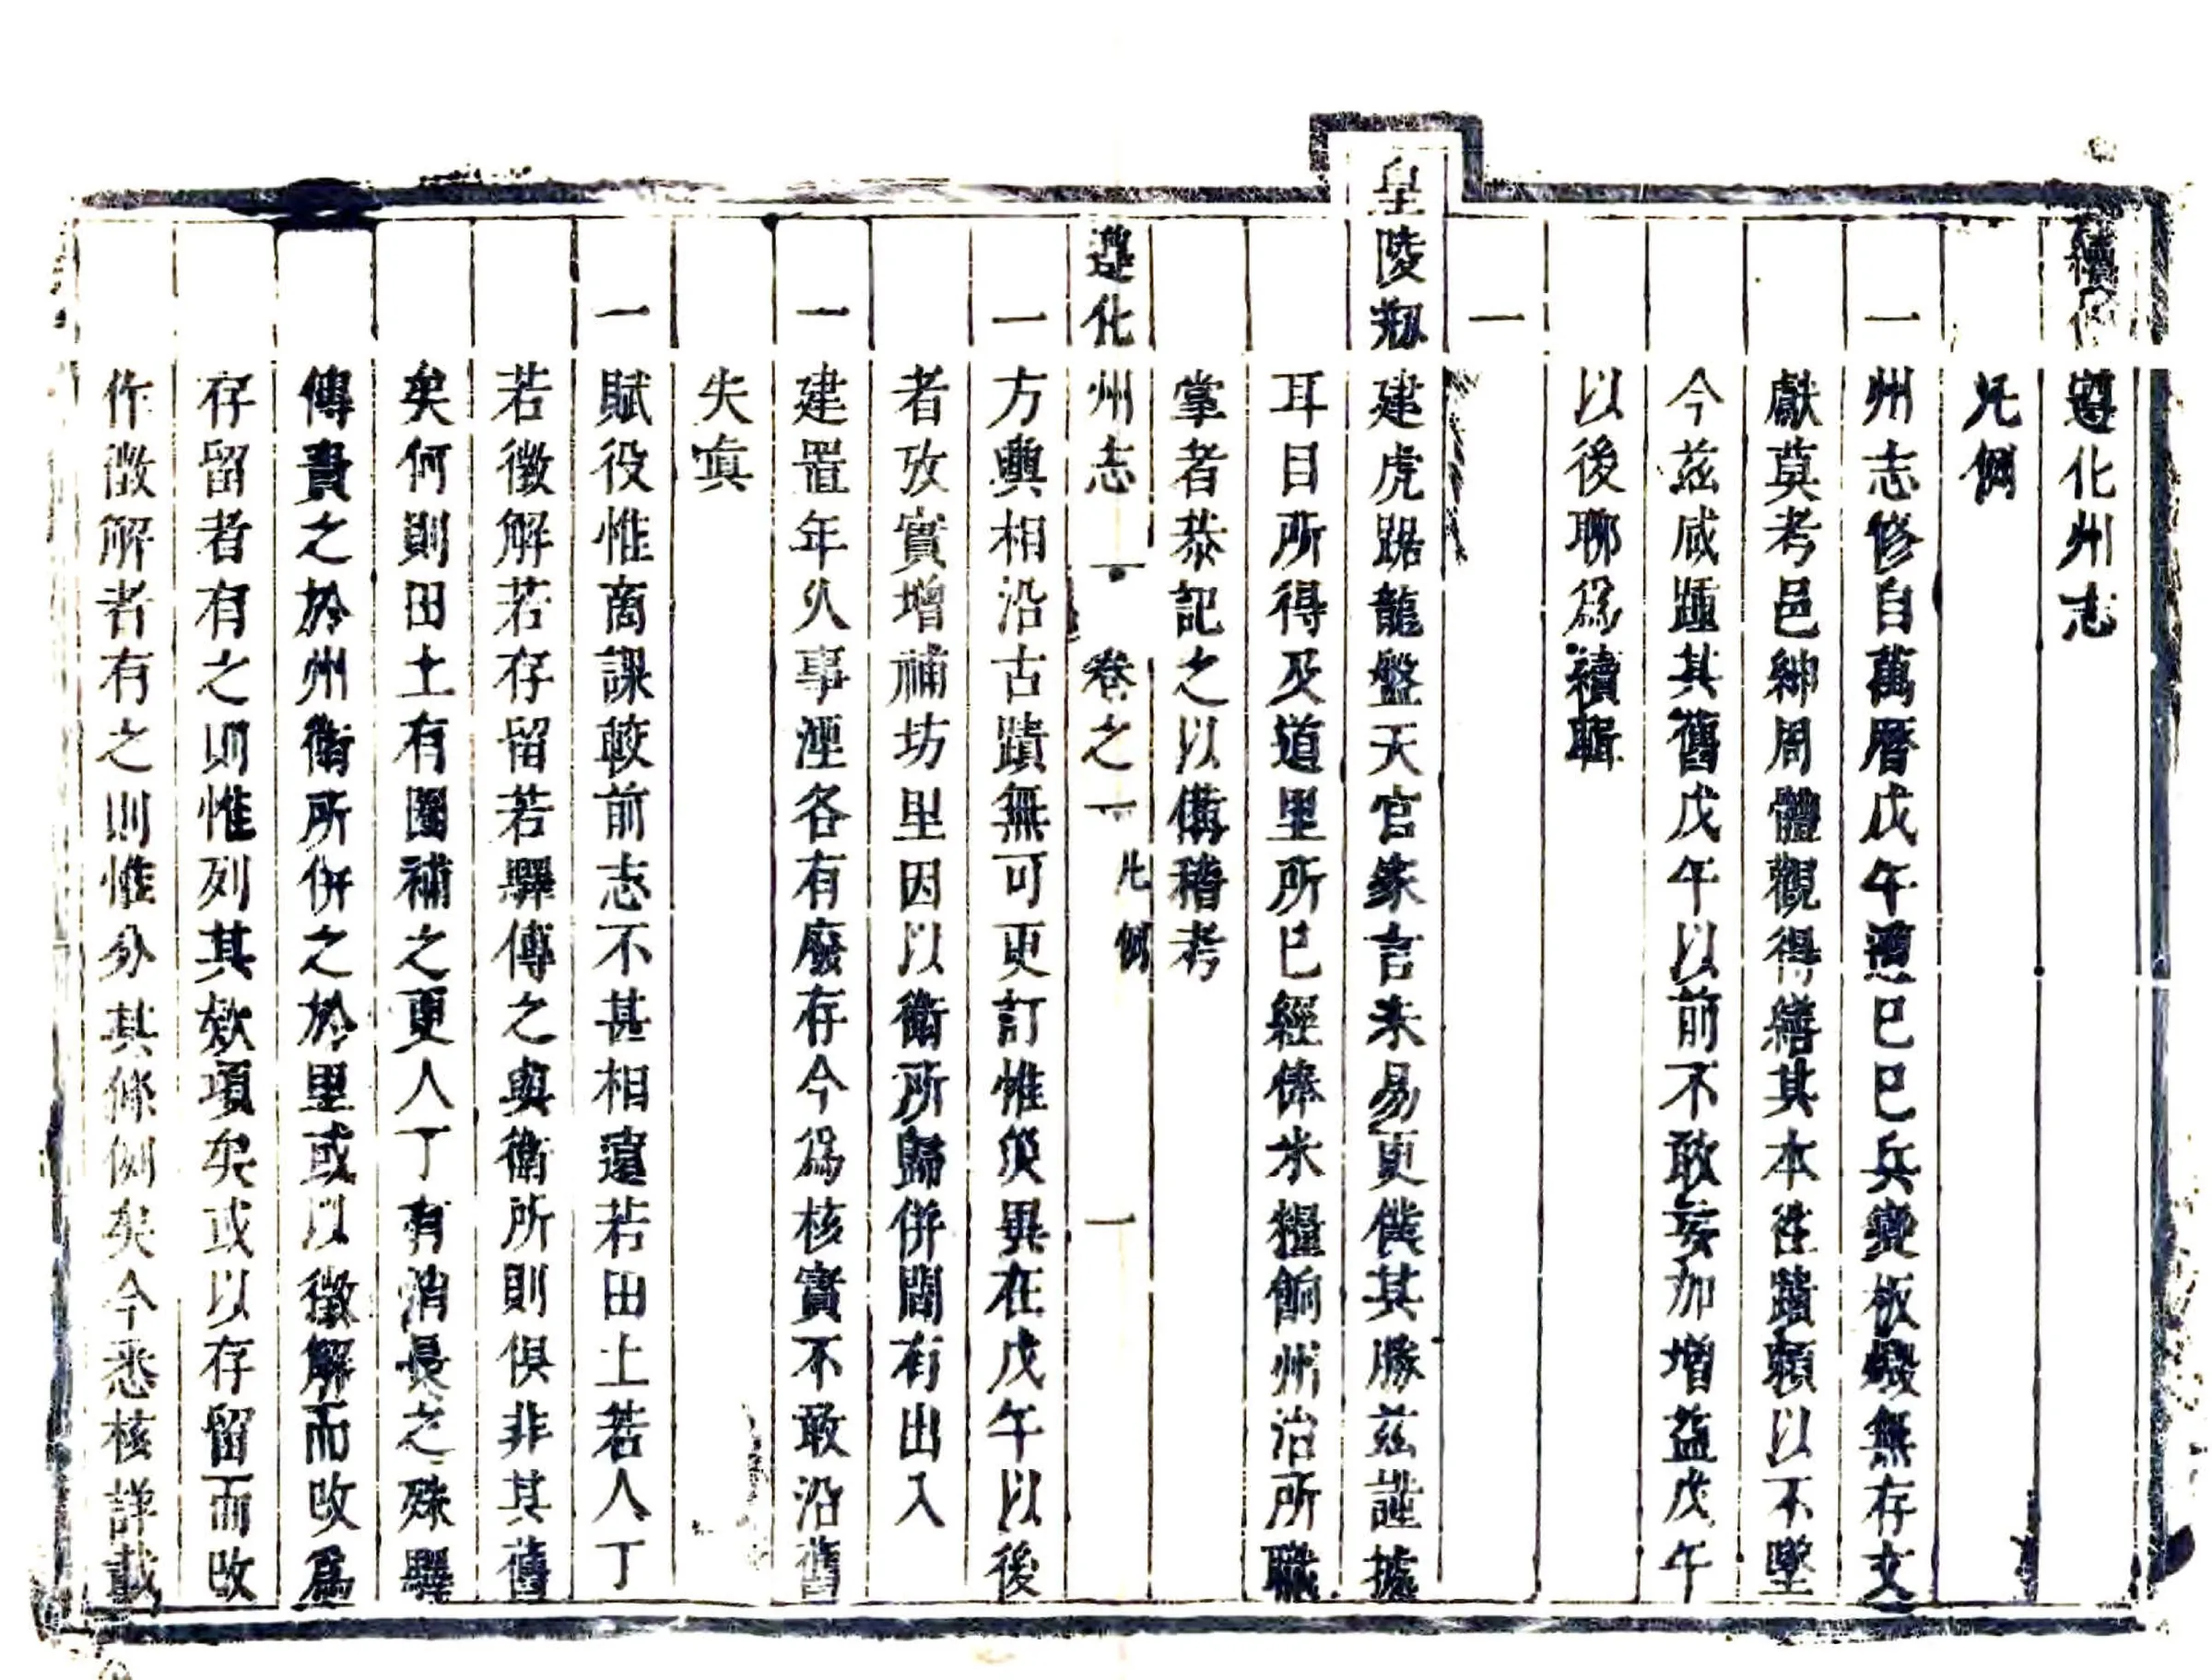 續修遵化州志
凡例
一州志修自萬曆戊午遭己巳兵變板燬無存文
獻莫考邑紳周體觀得繕其本往蹟賴以不墜
今茲咸踵其舊戊午以前不敢妄加增益戊午
以後聊爲續輯
一
皇陵剏建虎踞龍盤天官象言未易更僕其勝茲謹據
耳目所得及道里所已經俸米糧餉州治所職
掌者恭記之以備稽考
遵化州志 卷之一 凡例 一
一方輿相沿古蹟無可更訂惟災異在戊午以後
者攷實增補坊里因以衛所歸併間有出入
一建置年久事湮各有廢存今爲核實不敢沿舊
失眞
一賦役惟商課較前志不甚相遠若田土若人丁
若徵解若存留若驛傳之與衛所則俱非其舊
矣何則田土有圈補之更人丁有消長之殊驛
傳責之於州衛所併之於里或以徵解而改爲
存留者有之則惟列其欵項矣或以存留而改
作徵解者有之則惟分其條例矣今悉核詳載